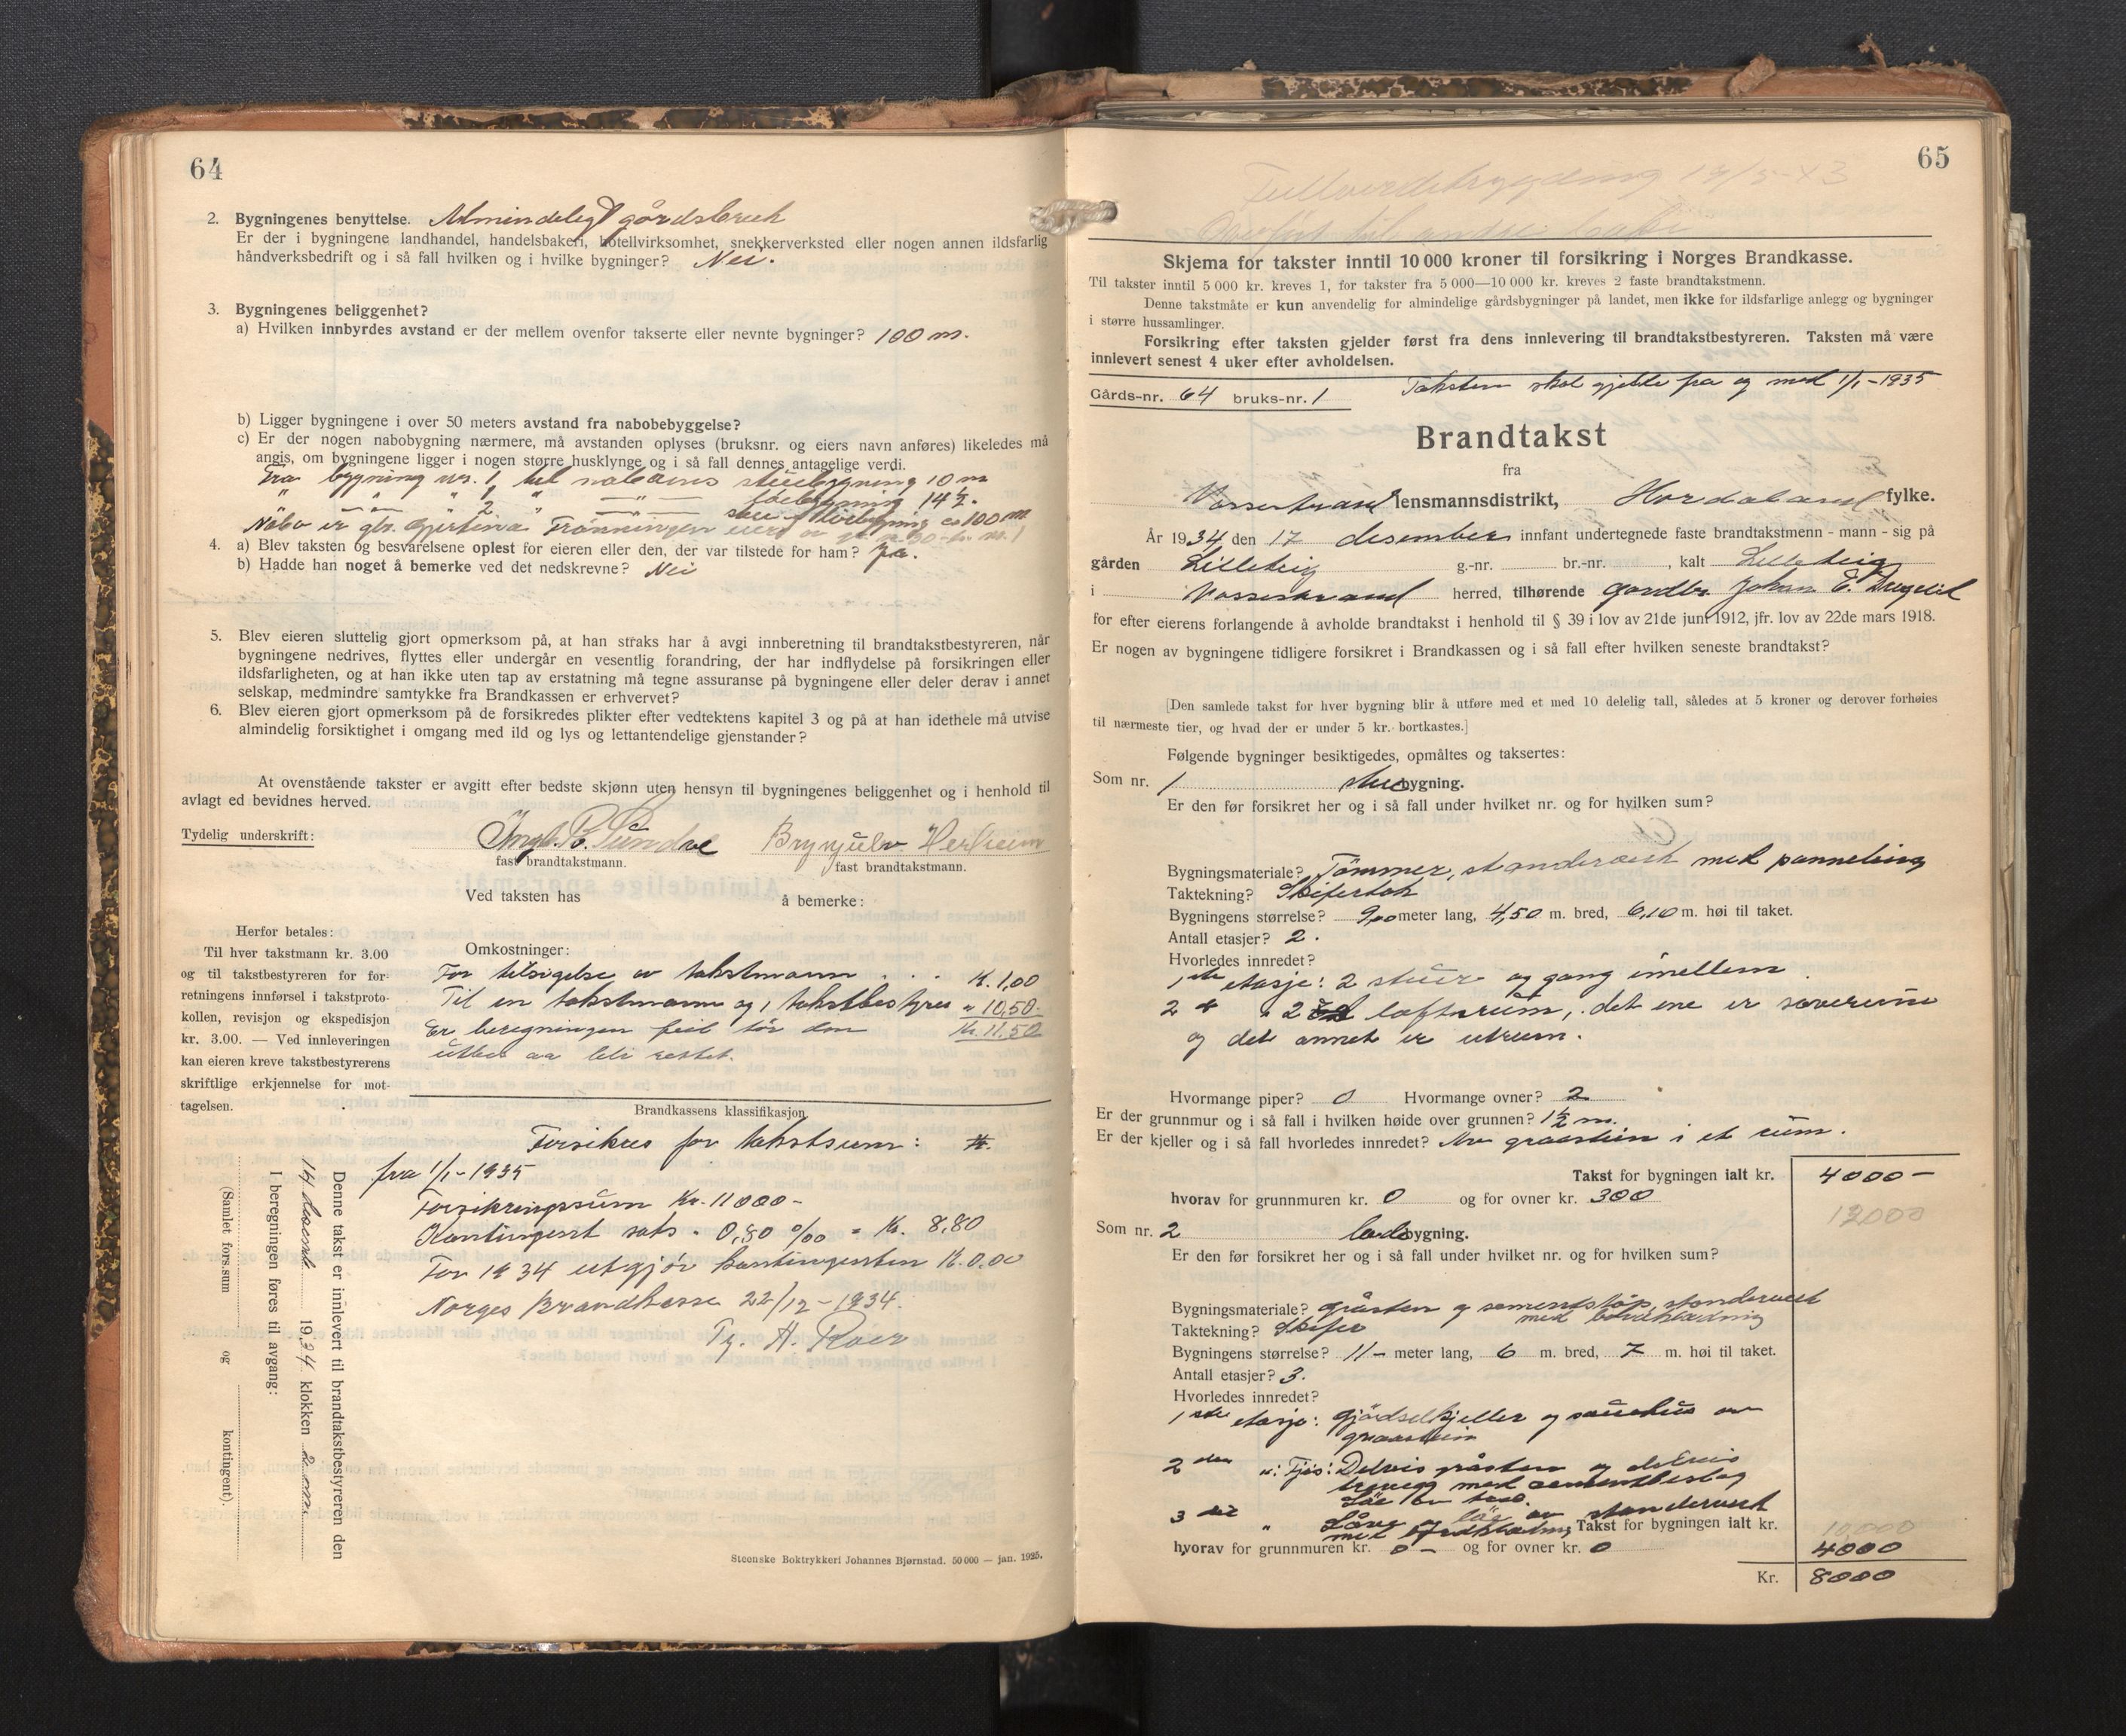 64
2. Bygningenes benyttelse. Almindeligt gårdsbruk
Er der i bygningene landhandel, handelsbakeri, hotellvirksomhet, snekkerverksted eller nogen annen ildsfarlig
håndverksbedrift og i så fall hvilken og i hvilke bygninger? Nei.
3. Bygningenes beliggenhet?
a) Hvilken innbyrdes avstand er der mellem ovenfor takserte eller nevnte bygninger? 100 m.
b) Ligger bygningene i over 50 meters avstand fra nabobebyggelse?
c) Er der nogen nabobygning nærmere, må avstanden oplyses (bruksnr. og eiers navn anføres) likeledes må
angis, om bygningene ligger i nogen større husklynge og i så fall dennes antagelige verdi.
Fra bygning nr. 1 til naboens stuebygning 10 m
" " " 1 " — " — løebygning 14 ½.
" " " 2 " — " — stue og løebygning ca 100 m
Nabo er gbr. Gjertina Trønningen
4. a) Blev taksten og besvarelsene oplest for eieren eller den, der var tilstede for ham? Ja.
b) Hadde han noget å bemerke ved det nedskrevne? Nei
5. Blev eieren sluttelig gjort opmerksom på, at han straks har å avgi innberetning til brandtakstbestyreren, når
bygningene nedrives, flyttes eller undergår en vesentlig forandring, der har indflydelse på forsikringen eller
ildsfarligheten, og at han ikke uten tap av erstatning må tegne assuranse på bygningene eller deler derav i annet
selskap, medmindre samtykke fra Brandkassen er erhvervet?
6. Blev eieren gjort opmerksom på de forsikredes plikter efter vedtektens kapitel 3 og på at han idethele må utvise
almindelig forsiktighet i omgang med ild og lys og lettantendelige gjenstander?
At ovenstående takster er avgitt efter bedste skjønn uten hensyn til bygningenes beliggenhet og i henhold til
avlagt ed bevidnes herved.
Tydelig underskrift: Ingb. B. Sundve Brynjulv Herheim
fast brandtakstmann. fast brandtakstmann.
Ved taksten has å bemerke:
Herfor betales:
Til hver takstmann kr. 3.00
og til takstbestyreren for for-
retningens innførsel i takstproto-
kollen, revisjon og ekspedisjon
kr. 3.00. — Ved innleveringen
kan eieren kreve takstbestyrerens
skriftlige erkjennelse for mot-
tagelsen.
Omkostninger:
For tilsigelse av takstmann . . . K. 1,00
Til en takstmann og 1 takstbestyrer " 10,50.
Er beregningen feil bør den Kr. 11.50
utbes aa bli rettet.
Brandkassens klassifikasjon
Forsikres for takstsum:
fra 1/1-1935
Forsikringssum Kr. 11000-
Kontingent sats . 0,80 ‰ = Kr. 8,80
For 1934 utgjør kontingenten K. 0.00
Norges Brandkasse 22/12-1934.
H. Roer
Denne takst er innlevert til brandtakstbestyreren den
14 desemb. 1934 klokken 2
I beregningen føres til avgang:
(Samlet fors.sum og kontingent).
Steenske Boktrykkeri Johannes Bjørnstad. 50 000 — jan. 1925.
65
Fullverdibygding 19/5-43
Overført til andre
Skjema for takster inntil 10 000 kroner til forsikring i Norges Brandkasse.
Til takster inntil 5 000 kr. kreves 1, for takster fra 5 000—10 000 kr. kreves 2 faste brandtakstmenn.
Denne takstmåte er kun anvendelig for almindelige gårdsbygninger på landet, men ikke for ildsfarlige anlegg og bygninger
i større hussamlinger.
Forsikring efter taksten gjelder først fra dens innlevering til brandtakstbestyreren. Taksten må være
innlevert senest 4 uker efter avholdelsen.
Gårds-nr. 64 bruks-nr. 1 Taksten skal gjelde fra og med 1/1-1935
Brandtakst
fra
Vossestrand lensmannsdistrikt, Hordaland fylke.
År 1934 den 17 desember innfant undertegnede faste brandtakstmenn - mann - sig på
gården Lilleteig g.-nr. br.-nr. , kalt Lilleteig
i Vossestrand herred, tilhørende gardbr. Johan E. Dregelid
for efter eierens forlangende å avholde brandtakst i henhold til § 39 i lov av 21de juni 1912, jfr. lov av 22de mars 1918.
Er nogen av bygningene tidligere forsikret i Brandkassen og i så fall efter hvilken seneste brandtakst?
[Den samlede takst for hver bygning blir å utføre med et med 10 delelig tall, således at 5 kroner og derover forhøies
til nærmeste tier, og hvad der er under 5 kr. bortkastes.]
Følgende bygninger besiktigedes, opmåltes og taksertes:
Som nr. 1 stuebygning.
Er den før forsikret her og i så fall under hvilket nr. og for hvilken sum?
Bygningsmateriale? Tømmer, standerverk med panneling
Taktekning? Skifertak
Bygningens størrelse? 9,00 meter lang, 4,50 m. bred, 6,10 m. høi til taket.
Antall etasjer? 2.
Hvorledes innredet?
1ste etasje: 2 stuer og gang imellem
2 " 2 loftsrum, det ene er soverum
og det annet er utrum.
Hvormange piper? 0 Hvormange ovner? 2
Er der grunnmur og i så fall i hvilken høide over grunnen? 1½ m.
Er der kjeller og i så fall hvorledes innredet? Av graastein i et rum.
Takst for bygningen ialt kr. 4000-
hvorav for grunnmuren kr. 0 og for ovner kr. 300
12000
Som nr. 2 ladebygning.
Er den før forsikret her og i så fall under hvilket nr. og for hvilken sum?
Bygningsmateriale? gråsten og sementstøp, standerverk
med bordklædning
Taktekning? Skifer
Bygningens størrelse? 11- meter lang, 6 m. bred, 7 m. høi til taket.
Antall etasjer? 3.
Hvorledes innredet?
1ste etasje: gjødselkjeller og sauehus av
graastein
2den ": Fjøs: Delvis gråsten og delvis
trevegg med sementbeslag
Løe av
3die " Låve og løe av standerverk
med bordklædning Takst for bygningen ialt kr. 10,000
hvorav for grunnmuren kr. 0 - og for ovner kr. 0 4000
Kr. 8000